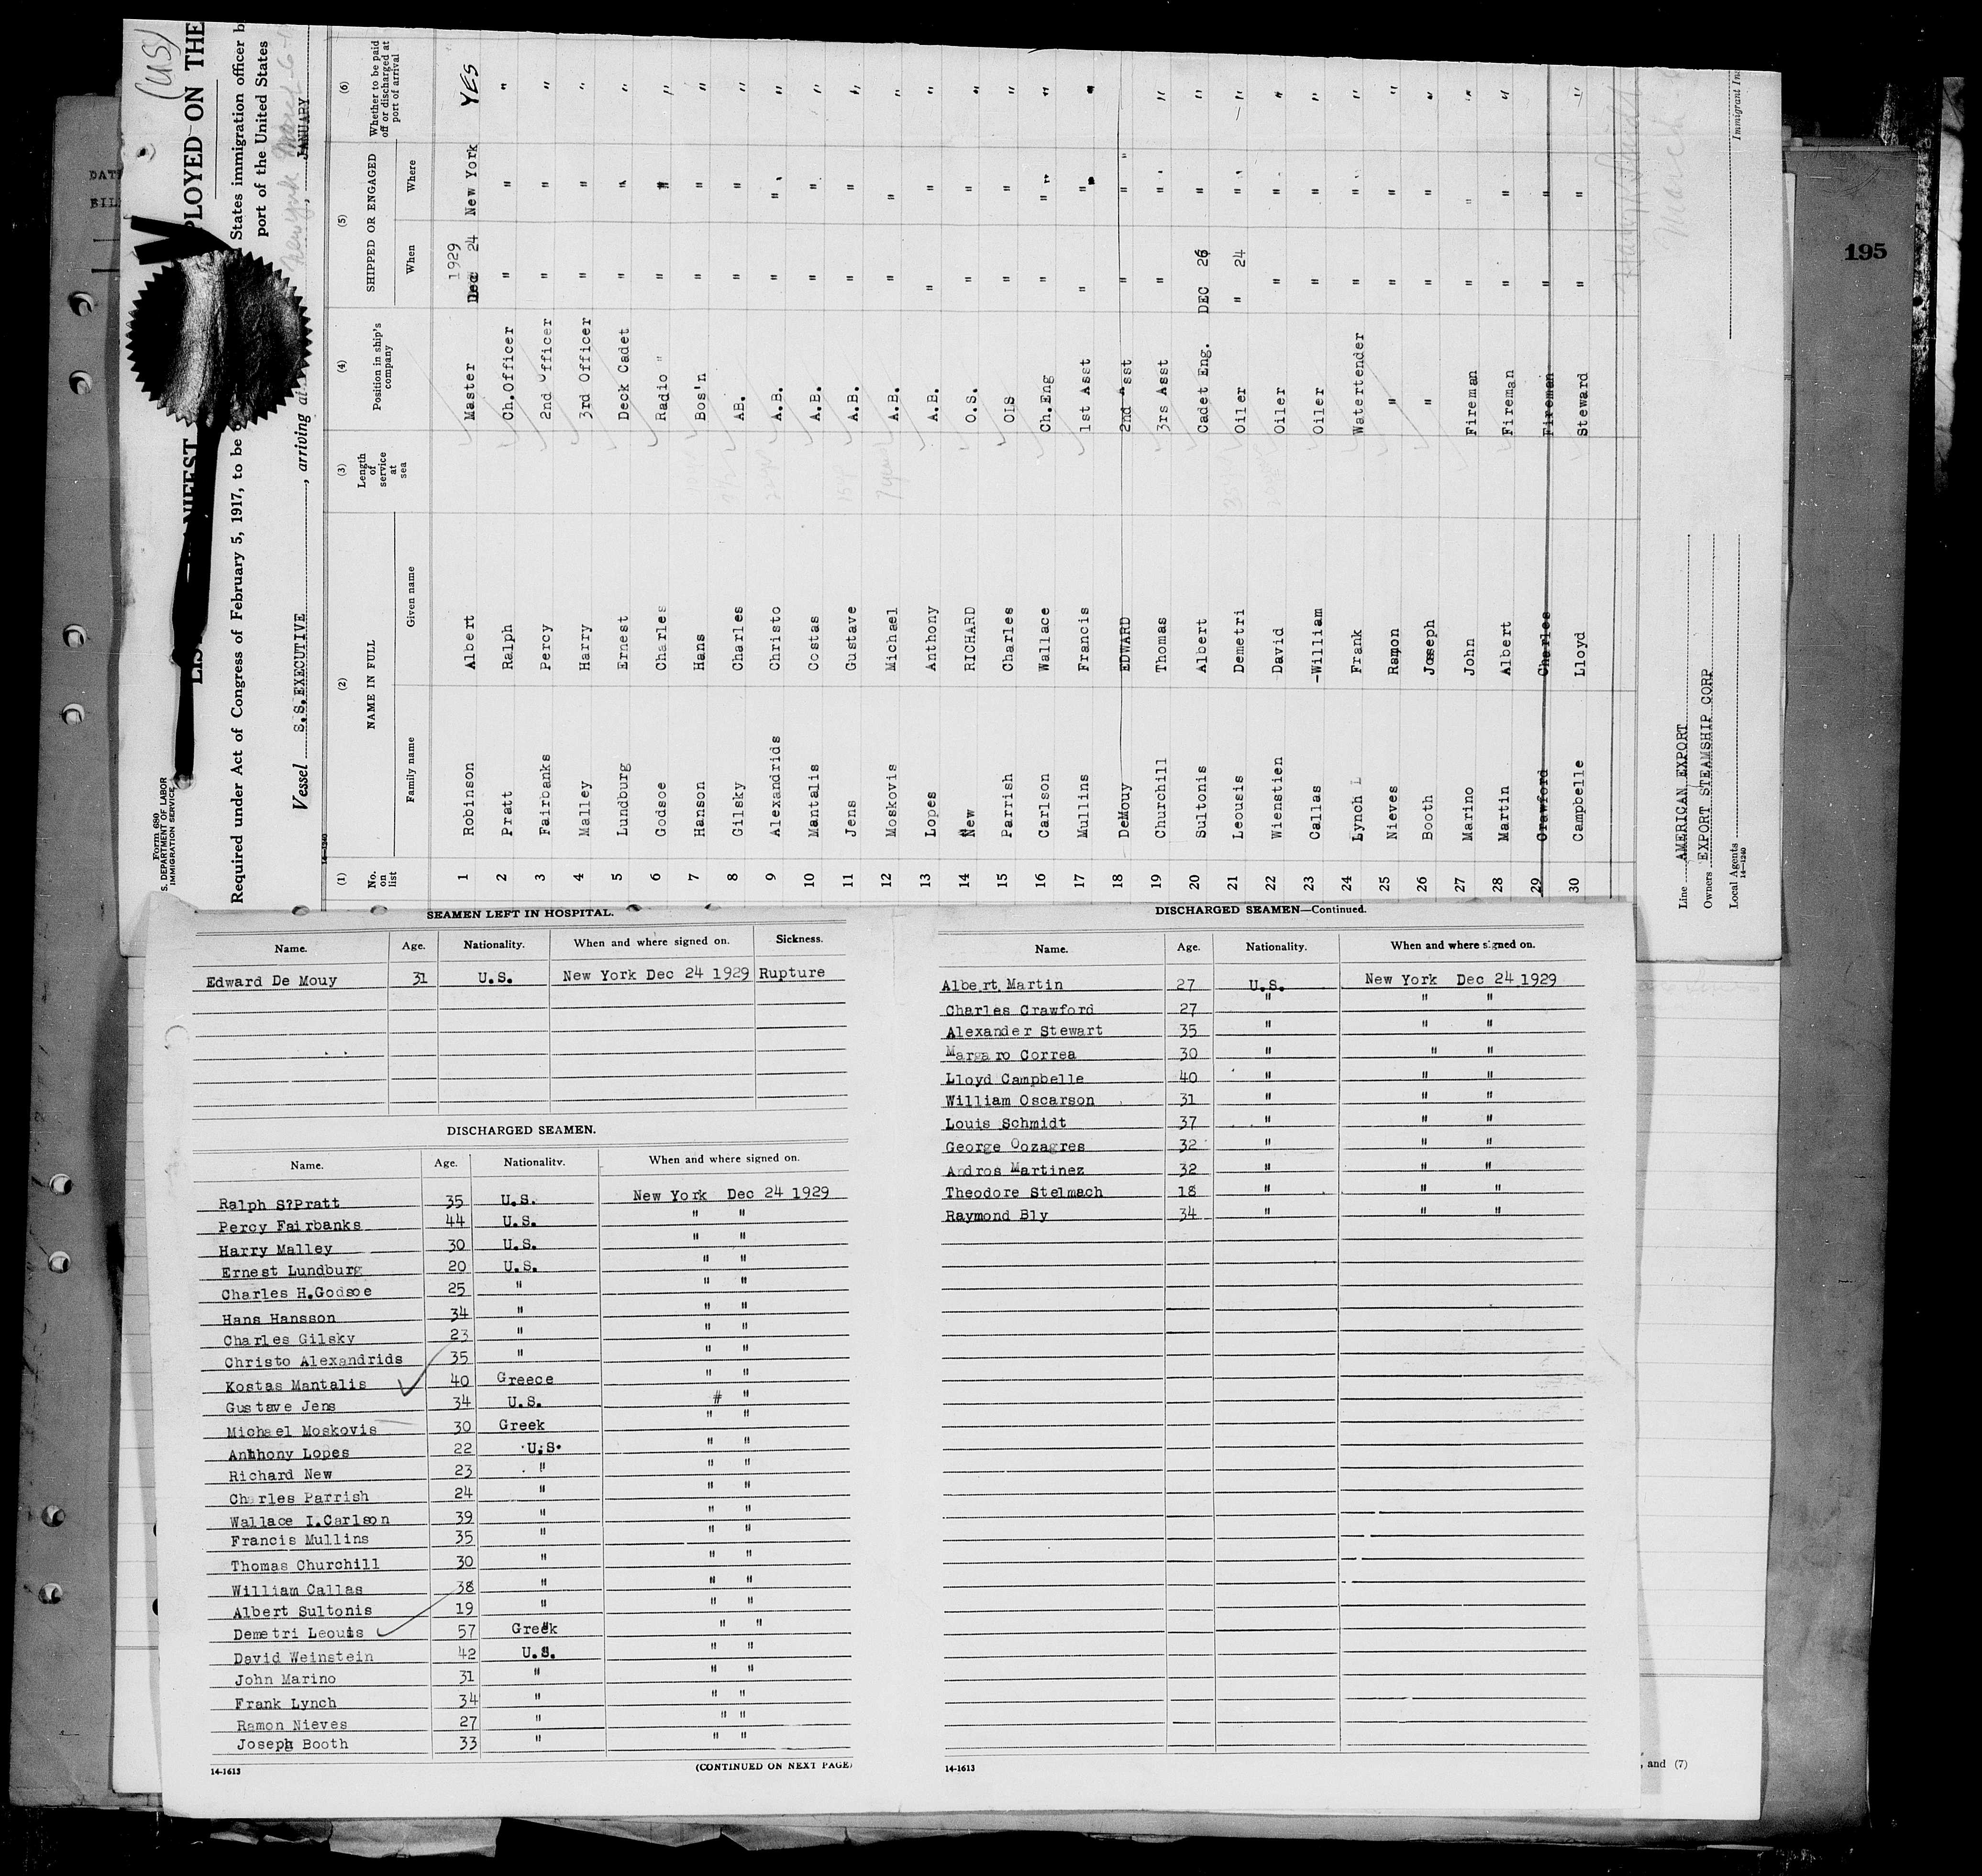 (US)
PLOYED ON THE
LIS
NIFEST
Form 680
S. DEPARTMENT OF LABOR
IMMIGRATION SERVICE
Required under Act of Congress of February 5, 1917, to be
States immigration officer b
port of the United States
Vessel S.S. EXECUTIVE, arriving at New York March 6
JANUARY
14-1240
(1) (2) (3) (4) (5) (6)
No. on list NAME IN FULL Length of service at sea Position in ship's company SHIPPED OR ENGAGED Whether to be paid off or discharged at port of arrival
Family name Given name When Where
1929
1 Robinson Albert Master Dec 24 New York YES
2 Pratt Ralph Ch.Officer " " "
3 Fairbanks Percy 2nd Officer " " "
4 Malley Harry 3rd Officer " " "
5 Lundburg Ernest Deck Cadet " " "
6 Godsoe Charles Radio " " " "
7 Hanson Hans Bos'n " " "
8 Gilsky Charles AB. " " "
9 Alexandrids Christo A.B. " " "
10 Mantalis Costas A.B. " " "
11 Jens Gustave A.B. " " "
12 Moskovis Michael 7 years A.B. " " "
13 Lopes Anthony A.B. " " "
14 New RICHARD O.S. " " "
15 Parrish Charles OLS " " "
16 Carlson Wallace Ch.Eng " " "
17 Mullins Francis 1st Asst " " "
18 DeMouy EDWARD 2nd Asst " " "
19 Churchill Thomas 3rs Asst " " "
20 Sultonis Albert Cadet Eng. DEC 26 " "
21 Leousis Demetri Oiler " 24 " "
22 Wienstien David Oiler " " "
23 Callas -William Oiler " " "
24 Lynch L Frank Watertender " " "
25 Nieves Ramon " " " "
26 Booth Joseph " " " "
27 Marino John Fireman " " "
28 Martin Albert Fireman " " "
29 Crawford Charles Fireman " "
30 Campbelle Lloyd Steward " " "
Line AMERICAN EXPORT
Owners EXPORT STEAMSHIP CORP
Local Agents
14-1240
March
Immigrant In
195
DAT
BIL
SEAMEN LEFT IN HOSPITAL.
Name. Age. Nationality. When and where signed on. Sickness.
Edward De Mouy 31 U.S. New York Dec 24 1929 Rupture
DISCHARGED SEAMEN.
Name. Age. Nationality. When and where signed on.
Ralph S?Pratt 35 U.S. New York Dec 24 1929
Percy Fairbanks 44 U.S. " "
Harry Malley 30 U.S. " "
Ernest Lundburg 20 U.S. " "
Charles H.Godsoe 25 " " "
Hans Hansson 34 " " "
Charles Gilsky 23 " " "
Christo Alexandrids 35 " " "
Kostas Mantalis 40 Greece " "
Gustave Jens 34 U.S. # "
Michael Moskovis 30 Greek " "
Anthony Lopes 22 U.S. " "
Richard New 23 " " "
Charles Parrish 24 " " "
Wallace I.Carlson 39 " " "
Francis Mullins 35 " " "
Thomas Churchill 30 " " "
William Callas 38 " " "
Albert Sultonis 19 " " "
Demetri Leouis 57 Greek " "
David Weinstein 42 U.S. " "
John Marino 31 " " "
Frank Lynch 34 " " "
Ramon Nieves 27 " " "
Joseph Booth 33 " " "
14-1613
(CONTINUED ON NEXT PAGE)
DISCHARGED SEAMEN—Continued.
Name. Age. Nationality. When and where signed on.
Albert Martin 27 U.S. New York Dec 24 1929
Charles Crawford 27 " " "
Alexander Stewart 35 " " "
Margaro Correa 30 " " "
Lloyd Campbelle 40 " " "
William Oscarson 31 " " "
Louis Schmidt 37 " " "
George Oozagres 32 " " "
Andros Martinez 32 " " "
Theodore Stelmach 18 " " "
Raymond Bly 34 " " "
14-1613
, and (7)